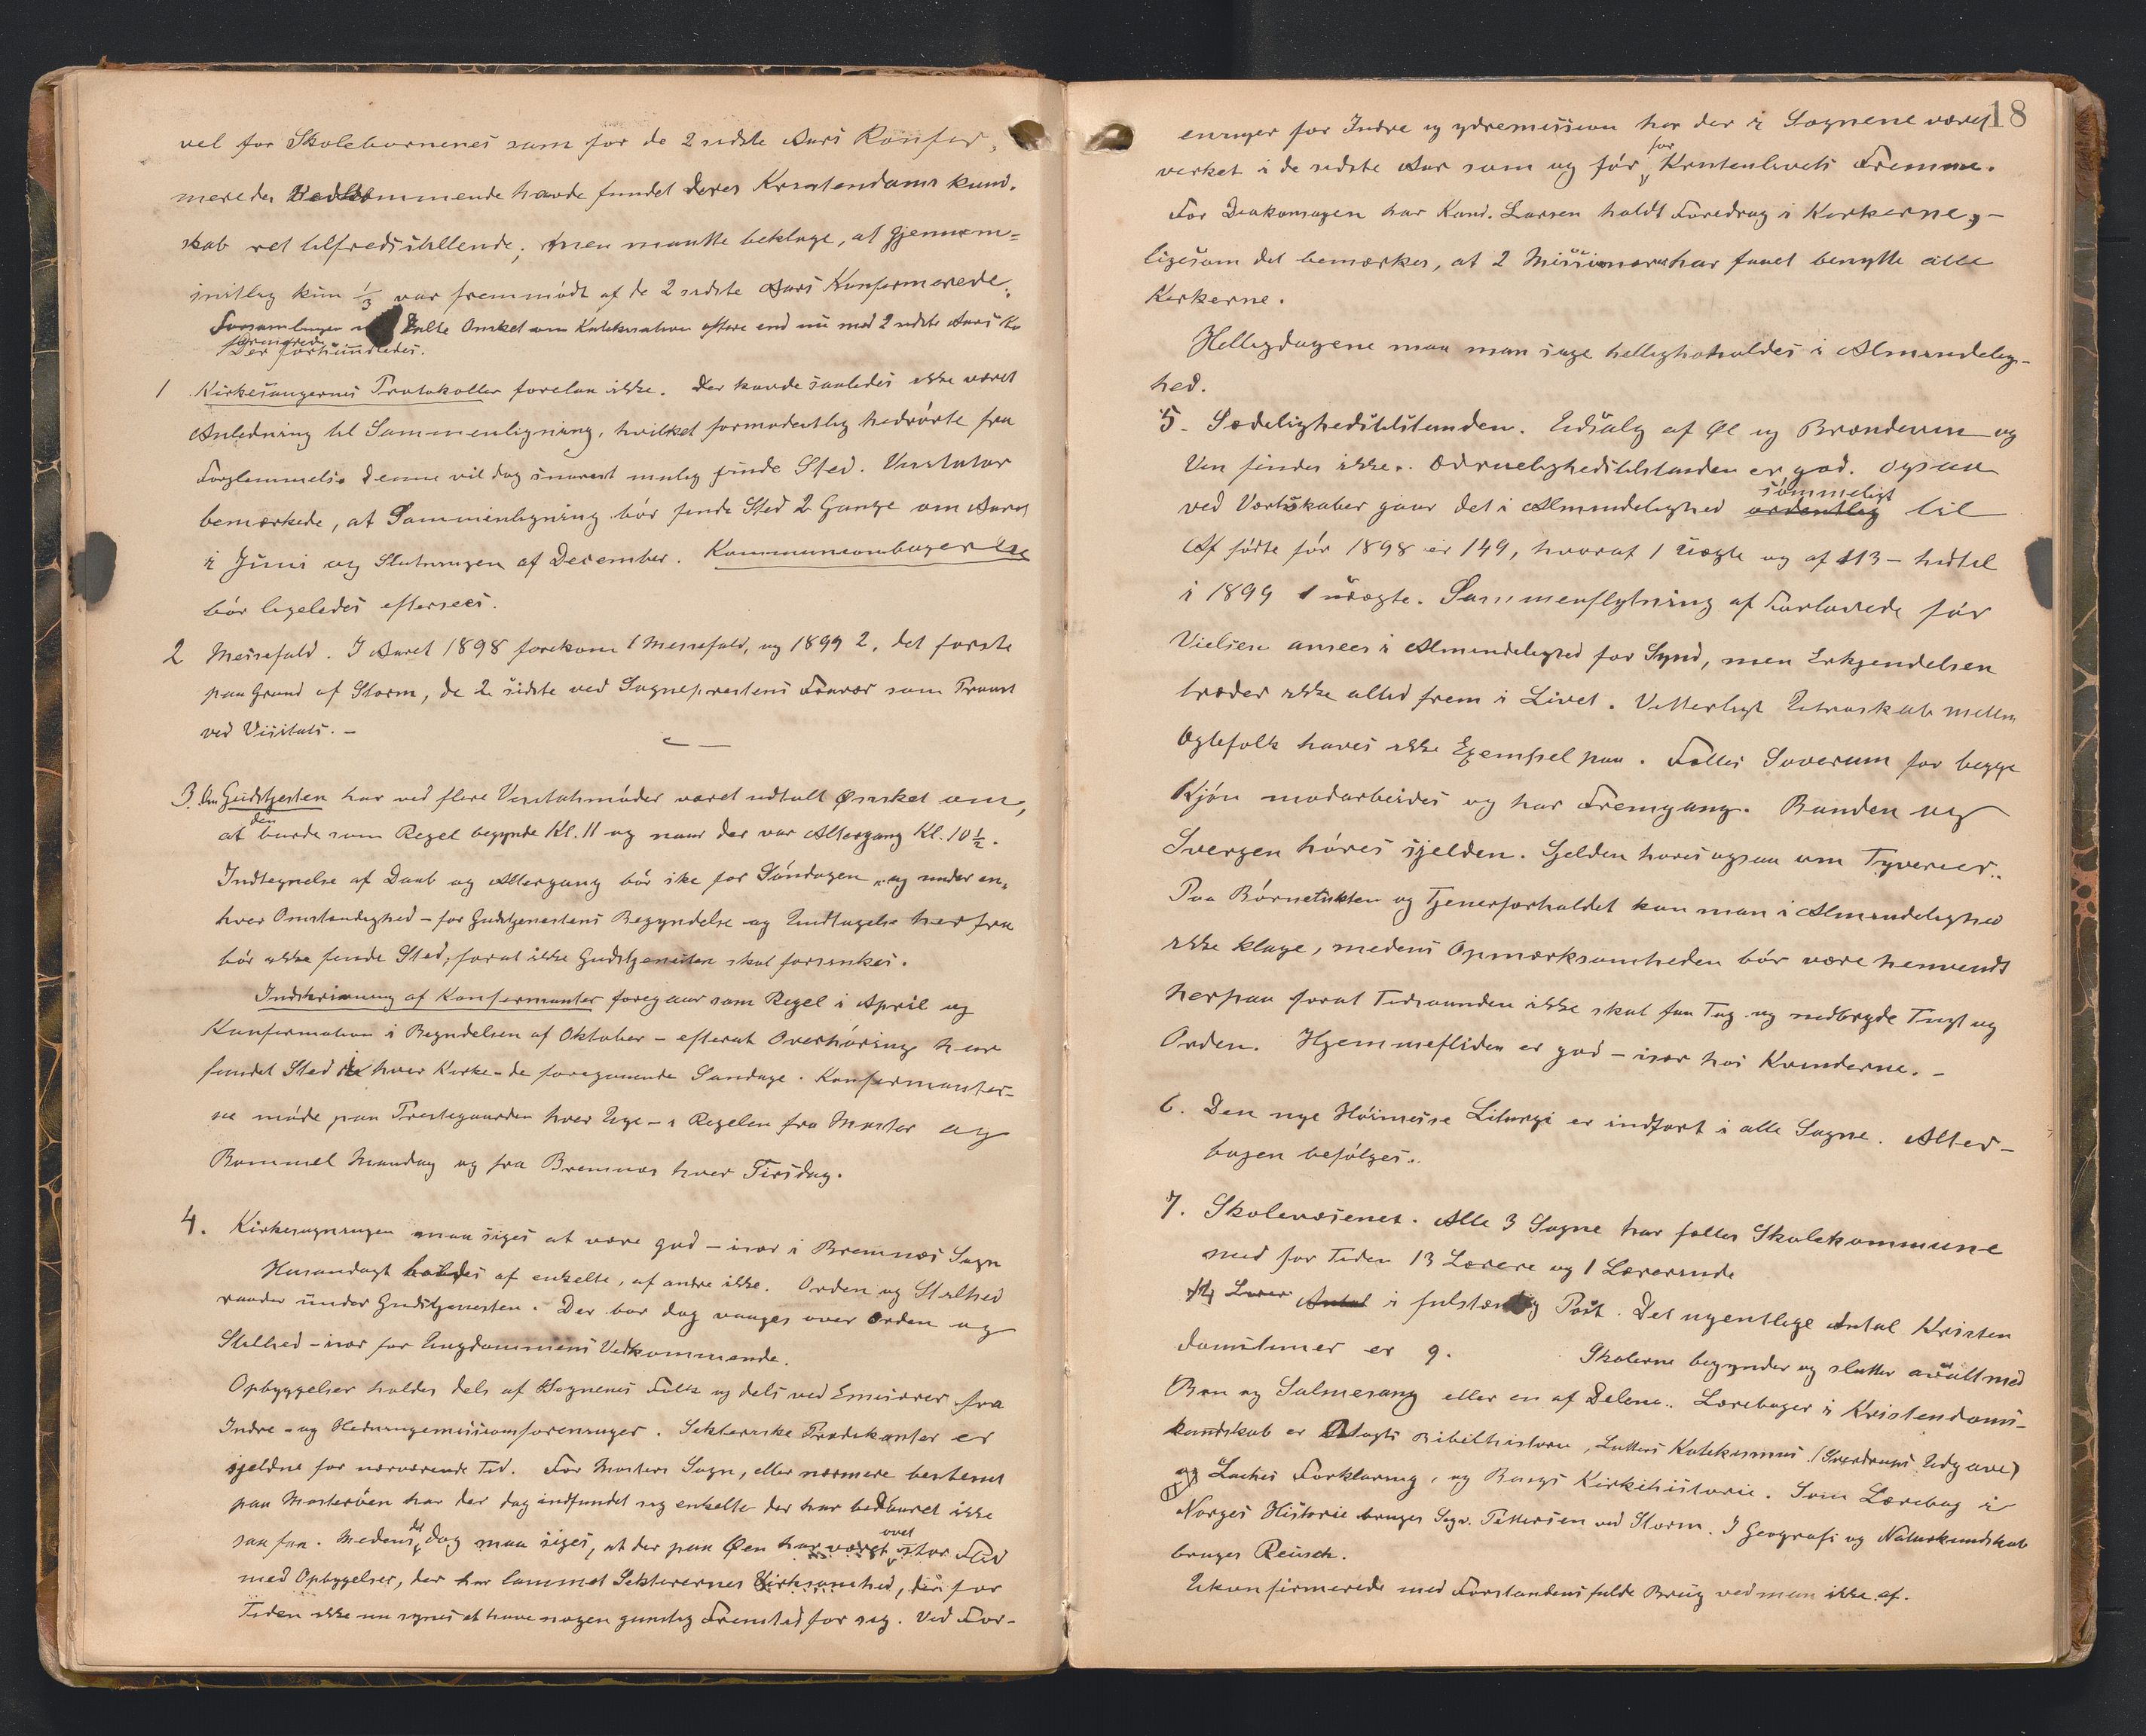 vel for Skolebørnenes som for de 2 sidste Aars Konfir-
meredes Vedkommende havde fundet deres Kristendomskund-
skab ret tilfredsstillende; men maatte beklage, at gjennem-
snitlig kun 1/3 var fremmødt af de 2 sidste Aars Konfirmerede.
Forsamlingen udtalte Ønsket om Katekisation oftere end nu med 2 sidste Aars Kon
firmerede
Der forhandledes.
1 Kirkesangernes Protokoller forelaa ikke. Der havde saaledes ikke været
Anledning til Sammenligning, hvilket formodentlig hedrørte fra
Forglemmelse denne vil dog snarest mulig finde Sted. Visitator
bemærkede, at Sammenligning bør finde Sted 2 Gange om Aaret
i Juni og Slutningen af December. Kommunionbøgerne
bør ligeledes eftersees.
2 Messefald. I Aaret 1898 forekom 1 Messefald, og 1899 2, det første
paa Grund af Storm, de 2 sidste ved Sogneprestens Fravær som Provst
ved Visitats. -
3. Om Gudstjesten har ved flere Visitatsmøder været udtalt Ønsket om,
at den burde som Regel begynde Kl. 11 og naar der var Altergang Kl. 10 1/2.
Indtegnelse af Daab og Altergang bør ske før Søndagen og under en-
hver Omstændighed - før Gudstjenestens Begyndelse og Undtagelse herfra
bør ikke finde Sted, forat ikke Gudstjenesten skal forsinkes.
Indskrivning af Konfirmanter foregaar som Regel i April og
Konfirmation i Begyndelsen af Oktober - efterat Overhøring har
fundet Sted i hver Kirke de foregaaende Søndage. Konfirmanter-
ne møde paa Prestegaarden hver Uge - i Regelen fra Moster og
Bømmel Mandag og fra Bremnes hver Tirsdag.
4. Kirkesøgningen maa siges at være god - især i Bremnes Sogn
Husandagt holdes af enkelte, af andre ikke. Orden og Stilhed
raader under Gudstjenesten. Der bør dog vaages over Orden og
Stilhed - især for Ungdommens Vedkommende.
Opbyggelser holdes dels af Sognenes Folk og dels ved Emisærer fra
Indre- og Hedningemissionsforeninger. Sekteriske Prædikanter er
sjeldne for nærværende Tid. For Mosters Sogn, eller nærmere bestemt
paa Mosterøen har der dog indfundet sig enkelte der har bedaaret ikke
saa faa. Medens det dog maa siges, at der paa Øen har været øvet stor Flid
med Opbyggelser, der har lammet Sekterernes Virksomhed, der for
Tiden ikke nu synes at have nogen gunstig Fremtid for sig. Ved For-
18
eninger for Indre og ydremission har der i Sognene været
virket i de sidste Aar som og før for Kristenlivets Fremme.
For Diakonsagen har Kand. Larsen holdt Foredrag i Kirkerne, -
ligesom det bemærkes, at 2 Missionærer har faaet benytte alle
Kirkerne.
Helligdagene maa man sige helligholdes i Almindelig-
hed.
5. Sædelighedstilstanden. Udsalg af Øl og Brændevin og
Vin findes ikke. Ædruelighedstilstanden er god. Ogsaa
ved Værtskaber gaar det i Almindelighed ordentlig sømmeligt til
Af fødte før 1898 er 149, hvoraf 1 uægte og af 113 - hidtil
i 1899 1 uægte. Sammenflytning af Forlovede før
Vielsen ansees i Almindelighed for Synd, men Erkjendelsen
træder ikke altid frem i Livet. Vitterligt Utroskab mellem
Egtefolk haves ikke Exempel paa. Fælles Soverum for begge
Kjøn modarbeides og har Fremgang. Banden og
Sværgen høres sjelden. Sjelden høres ogsaa om Tyverier.
Paa Børnetukten og Tjenerforholdet kan man i Almindelighed
ikke klage, medens Opmærksomheden bør være henvendt
herpaa forat Tidsaanden ikke skal faa Tag og nedbryde Tugt og
Orden. Hjemmefliden er god - især hos Kvinderne. -
6. Den nye Høimesse Liturgi er indført i alle Sogne. Alter-
bogen befølges.
7. Skolevæsenet. Alle 3 Sogne har fælles Skolekommune
med for Tiden 13 Lærere og 1 Lærerinde
14 Lærer Antal i fulstændig Post. Det ugentlige Antal Kristen
domstimer er 9. Skolerne begynder og slutter overalt med
Bøn og Salmesang eller en af Delene. Lærebøger i Kristendoms-
kundskab er Vogts Bibelhistorie, Luthers Katekismus (Sverdrups Udgave)
og Laches Forklaring, og Bangs Kirkehistorie. Som Lærebog i
Norges Historie bruges Sigv. Pettersen ved Storm. I Geografi og Naturkundskab
bruges Reusch.
Ukonfirmerede med Forstandens fulde Brug ved man ikke af.